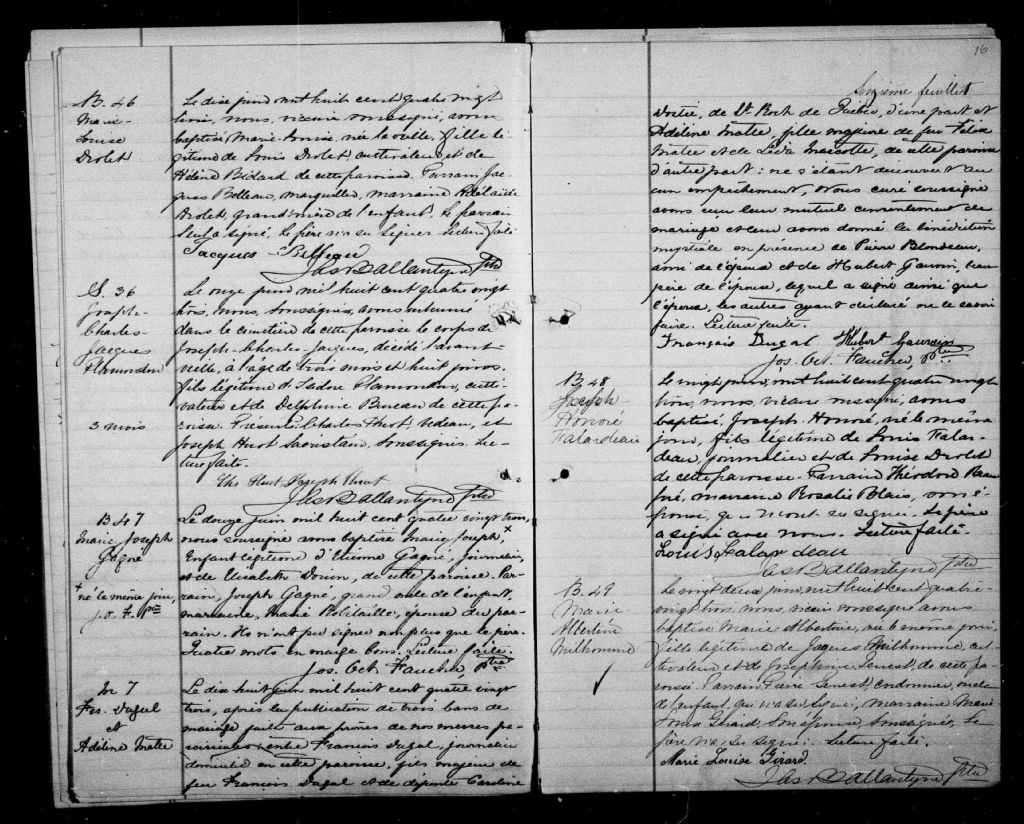 B. 46
Marie-
Louise
Drolet
Le dix juin mil huit cent quatre vingt
trois, nous, vicaire soussigné, avons
baptisé Marie-Louise, née la veille, fille lé-
gitime de Louis Drolet cultivateur et de
Adéline Bédard de cette paroisse. Parrain Jac-
ques Bolleau, marguiller, marraine Adélaïde
Drolet, grand'mère de l'enfant. Le parrain
seul a signé, le père n'a su signer. Lecture faite
Jacques
Jas Ballantyne Ptre
S. 36
Joseph-
Charles-
Jacques
Plamondon
3 mois
Le onze juin mil huit cent quatre vingt
trois, nous, soussigné, avons inhumé
dans le cimetière de cette paroisse le corps de
Joseph-Charles-Jacques, décédé l'avant-
veille, à l'âge de trois mois et huit jours,
fils légitime d'Isidore Plamondon, culti-
vateur et de Delphine Bureau de cette pa-
roisse. Présents Charles Huot, bedeau, et
Joseph Huot sacristain, soussignés. Lec-
ture faite.
Chs Huot, Joseph Huot
Jas Ballantyne Ptre
B 47
Marie Joseph
Gagné
+ né le même jour,
J.O. F. Ptre
Le douze juin mil huit cent quatre vingt trois,
nous soussigné avons baptisé Marie Joseph, +
Enfant légitime d'Etienne Gagné, journalier,
et de Elisabeth Dorion, de cette paroisse. Par-
rain, Joseph Gagné, grand oncle de l'enfant,
marraine, Marie Robitaille, épouse du par-
rain. Ils n'ont pu signer non plus que le père.
Quatre mots en marge bons. Lecture faite.
Jos. Oct. Faucher, Ptre
M 7
Frs. Dugal
et
Adéline Matte
Le dix huit juin mil huit cent quatre vingt
trois, après la publication de trois bans de
mariage faite aux prônes de nos messes pa-
roissiales entre François Dugal, journalier
domicilié en cette paroisse, fils majeur de
feu François Dugal et de défunte Caroline
16
Seizième feuillet
de St. Roch de Québec, d'une part et
Adéline Matte, fille majeure de feu Félix
Matte et de Léda Marcotte, de cette paroisse
d'autre part : ne s'étant découvert au-
cun empêchement, Nous curé soussigné
avons reçu leur mutuel consentement de
mariage et leur avons donné la bénédiction
nuptiale en présence de Pierre Blondeau,
ami de l'époux et de Hubert Gauvin, beau
père de l'épouse, lequel a signé ainsi que
l'époux, les autres ayant déclaré ne le savoir
faire. Lecture faite.
François Dugal Hubert Gauvin
Jos. Oct. Faucher, Ptre
B. 48
Joseph
Honoré
Falardeau
Le vingt juin, mil huit cent quatre vingt
trois, nous, vicaire soussigné, avons
baptisé, Joseph Honoré, né le même
jour, fils légitime de Louis Falar-
deau, journalier et de Louise Drolet
de cette paroisse. Parrain Théodore Beau-
pré, marraine Rosalie Blais, son é-
pouse, qui n'ont su signer. Le père
a signé avec nous. Lecture faite.
Louis Falardeau
Jas Ballantyne Ptre
B. 49
Marie
Albertine
Milhomme
Le vingt deux juin, mil huit cent quatre-
vingt trois, nous, vicaire soussigné avons
baptisé Marie Albertine, née le même jour,
fille légitime de Jacques Milhomme, cul-
tivateur et de Joséphine Genest, de cette pa-
roisse. Parrain Pierre Genest, cordonnier, oncle
de l'enfant, qui n'a su signer, marraine Marie
Louise Girard, son épouse, soussignée. Le
père n'a su signer. Lecture faite.
Marie Louise Girard
Jas Ballantyne Ptre